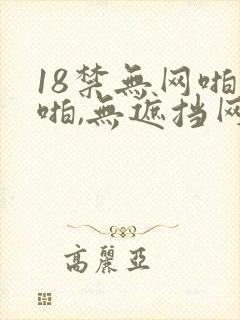 18禁無网啪
啪,無遮挡网
高麗亞